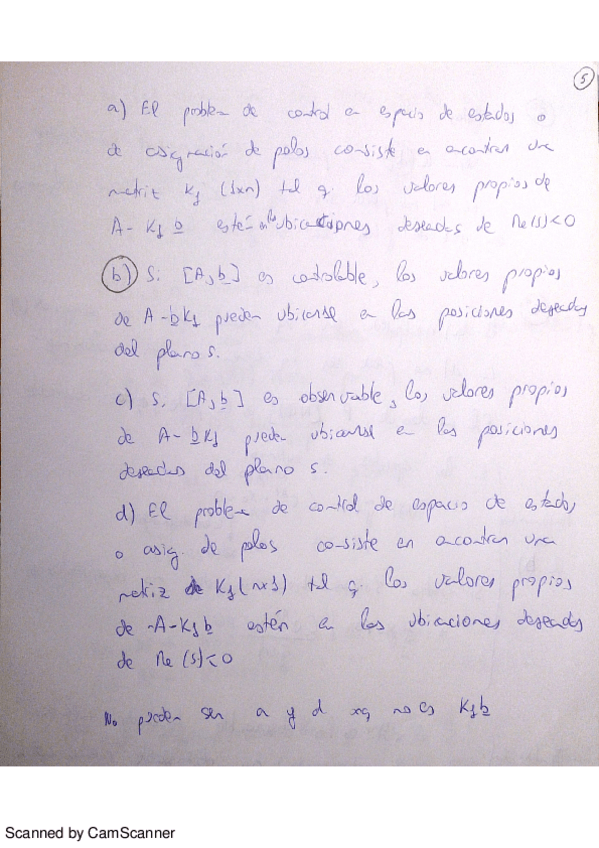 5
a) El problema de control en espacio de estados o
de asignación de polos consiste en encontrar una
matriz Kf (1xn) tal q. los valores propios de
A - Kf b estén en las ubicaciones deseadas de Re(s)<0
b) Si [A,b] es controlable, los valores propios
de A - b Kf pueden ubicarse en las posiciones deseadas
del plano s.
c) Si [A,b] es observable, los valores propios
de A - b Kf pueden ubicarse en las posiciones
deseadas del plano s.
d) El problema de control de espacio de estados,
o asig. de polos consiste en encontrar una
matriz Kf (nx1) tal q. los valores propios
de A - Kf b estén en las ubicaciones deseadas
de Re(s)<0
No pueden ser a y d xq no es Kf b
Scanned by CamScanner